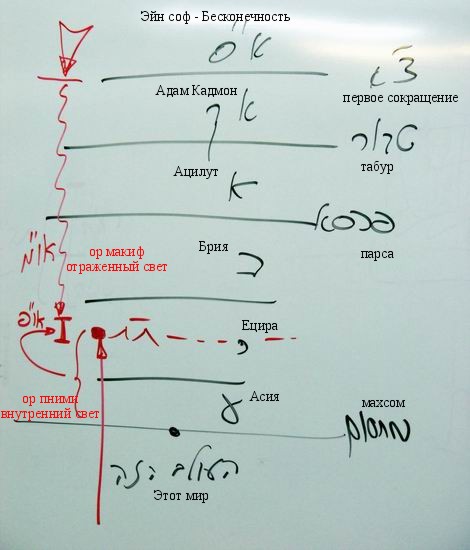 Эйн соф - Бесконечность
א"ס
צ"א
Адам Кадмон
первое сокращение
א ק
טבור
Ацилут
табур
א
פרסא
Брия
парса
או"מ
ор макиф
отраженный свет
ב
או"פ
I
Ецира
י
ор пними
внутренний свет
Асия
ע
махсом
מחסום
העולם הזה
Этот мир